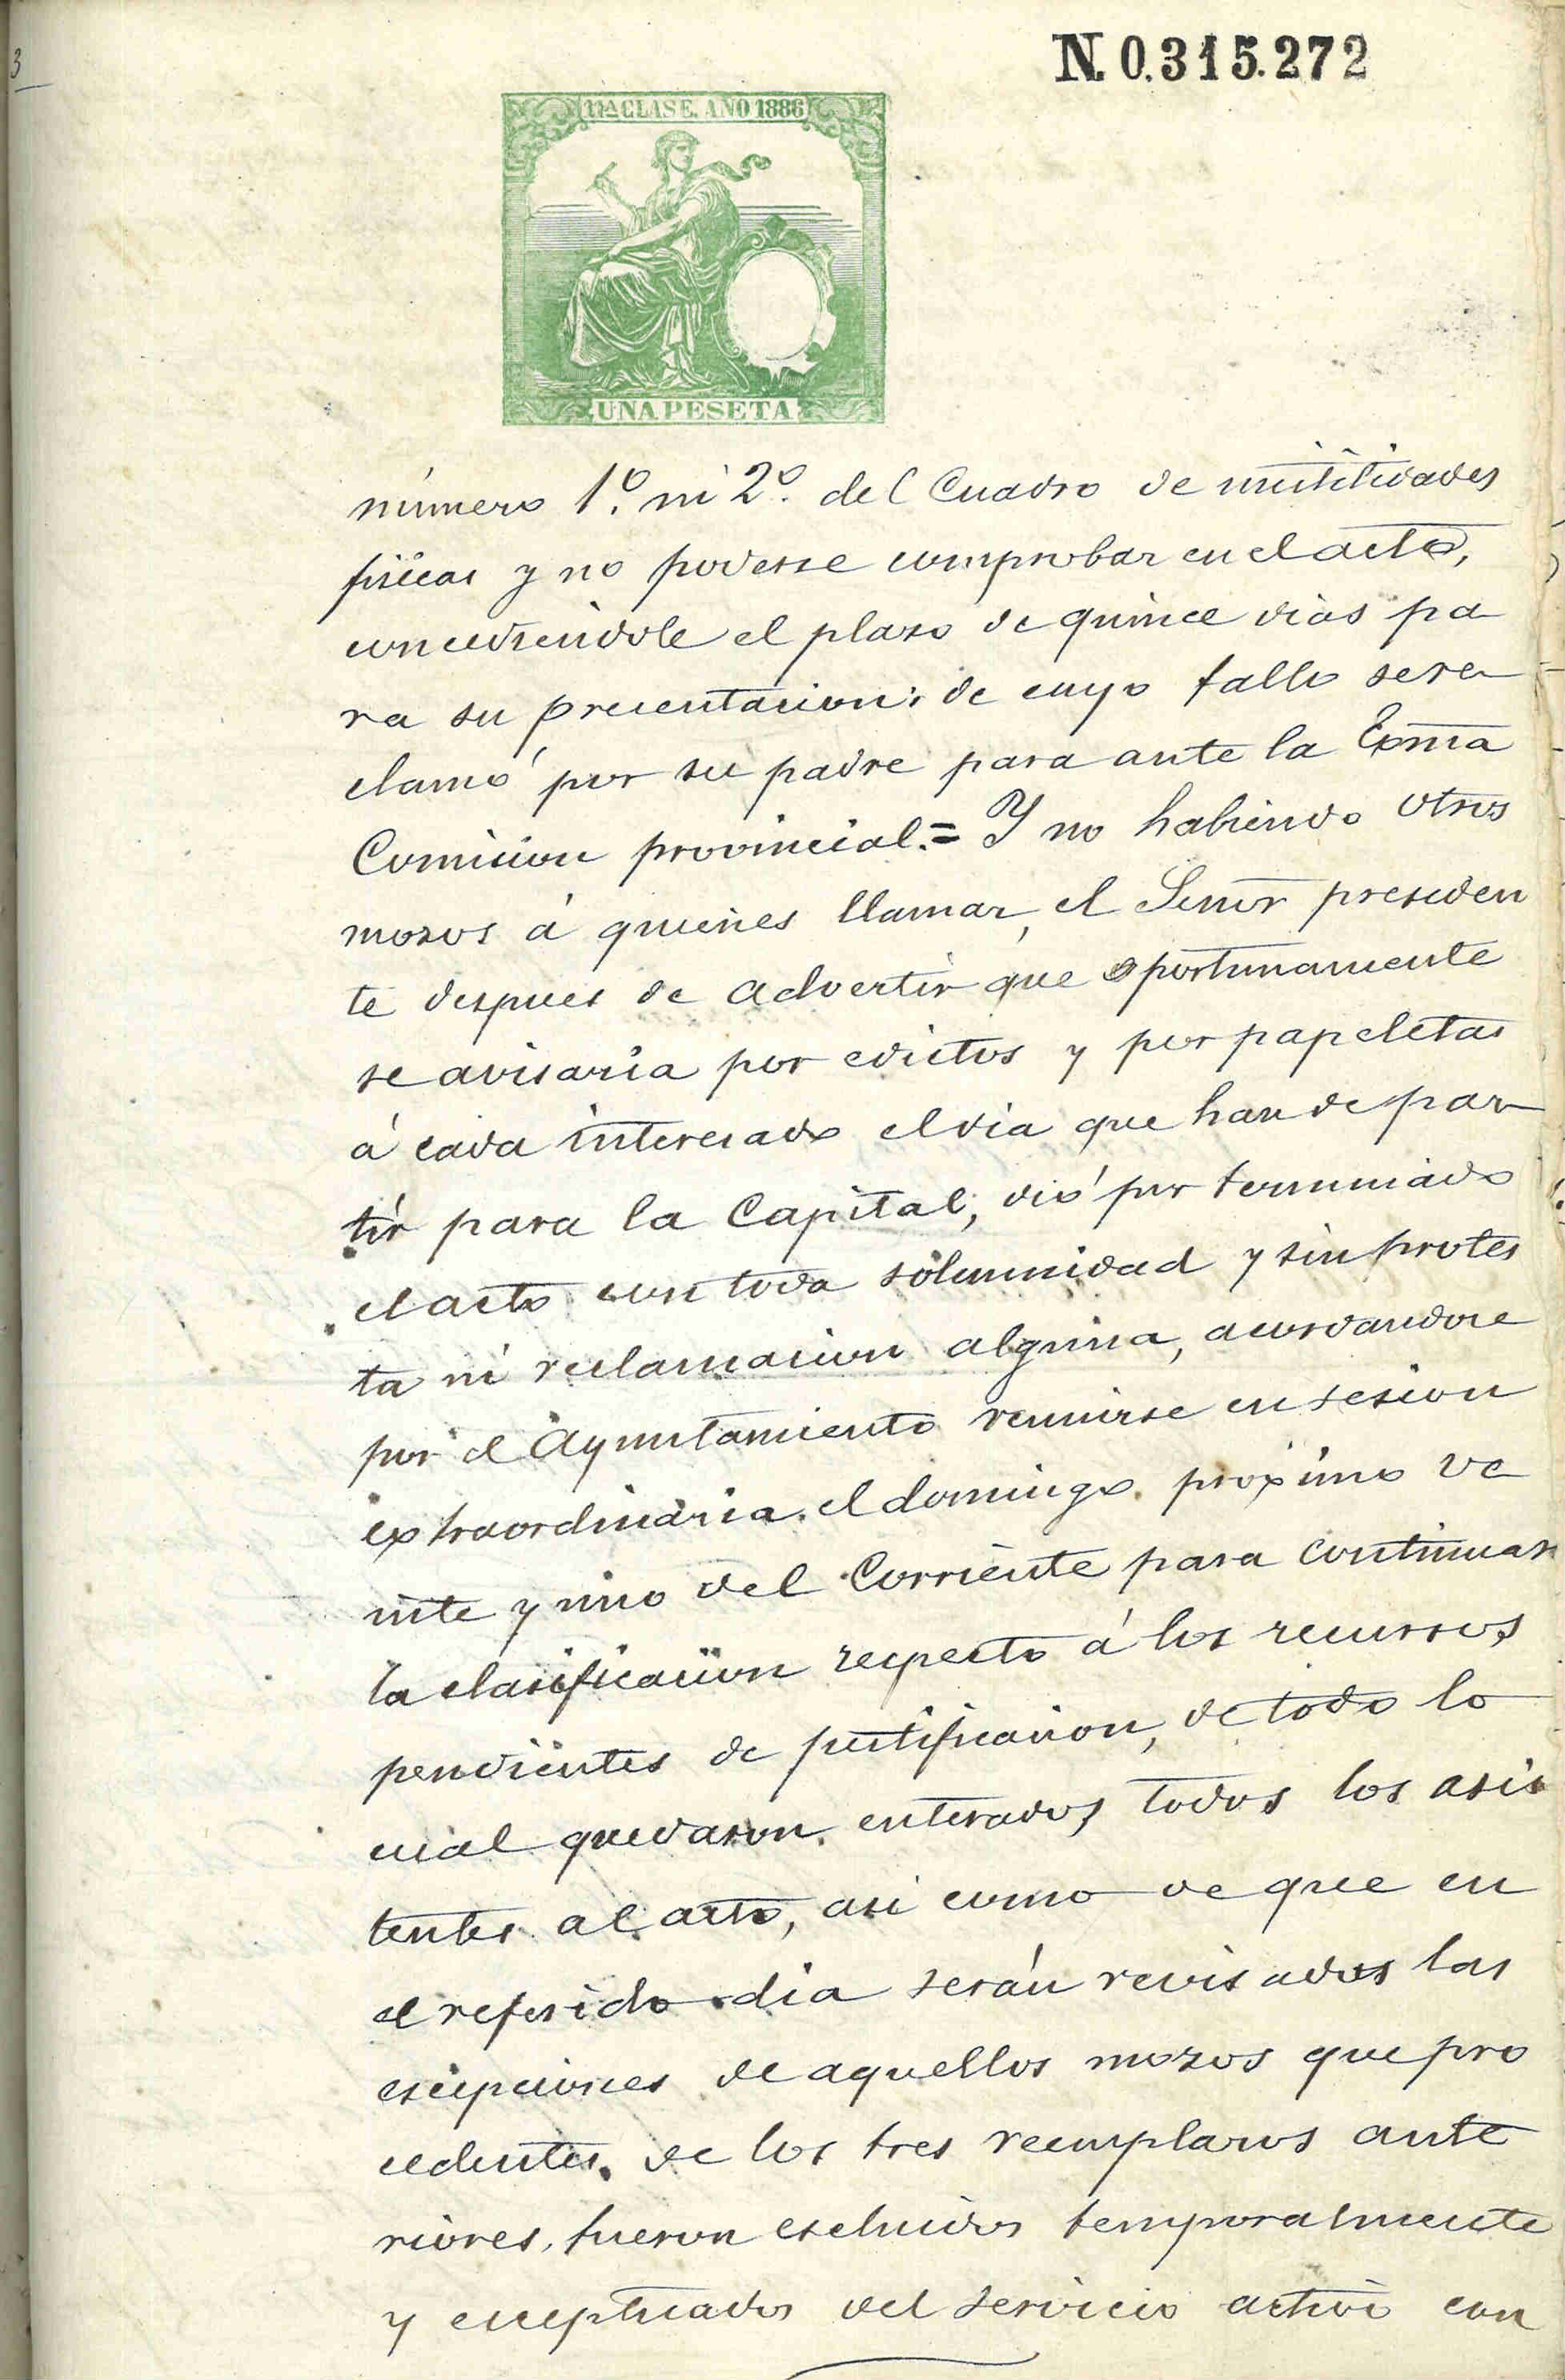 3
N. 0.315.272
11ª CLASE. AÑO 1886
UNA PESETA
número 1.º ni 2.º del Cuadro de inutilidades
fisicas y no poderse comprobar en el acto,
concediendole el plazo de quince dias pa
ra su presentacion; de cuyo fallo se re
clamó por su padre para ante la Exma
Comision provincial.= Y no habiendo otros
mozos á quienes llamar, el Señor presiden
te despues de advertir que oportunamente
se avisaria por edictos y por papeletas
á cada interesado el dia que han de par
tir para la Capital, dió por terminado
el acto con toda solemnidad y sin protes
ta ni reclamacion alguna, acordandose
por el Ayuntamiento reunirse en sesion
extraordinaria el domingo proximo ve
inte y uno del Corriente para continuar
la clasificacion respecto á los recursos
pendientes de justificacion, de todo lo
cual quedaron enterados todos los asis
tentes al acto, asi como de que en
el referido dia serán revisados las
escepciones de aquellos mozos que pro
cedentes de los tres reemplazos ante
riores, fueron escluidos temporalmente
y esceptuados del servicio activo con